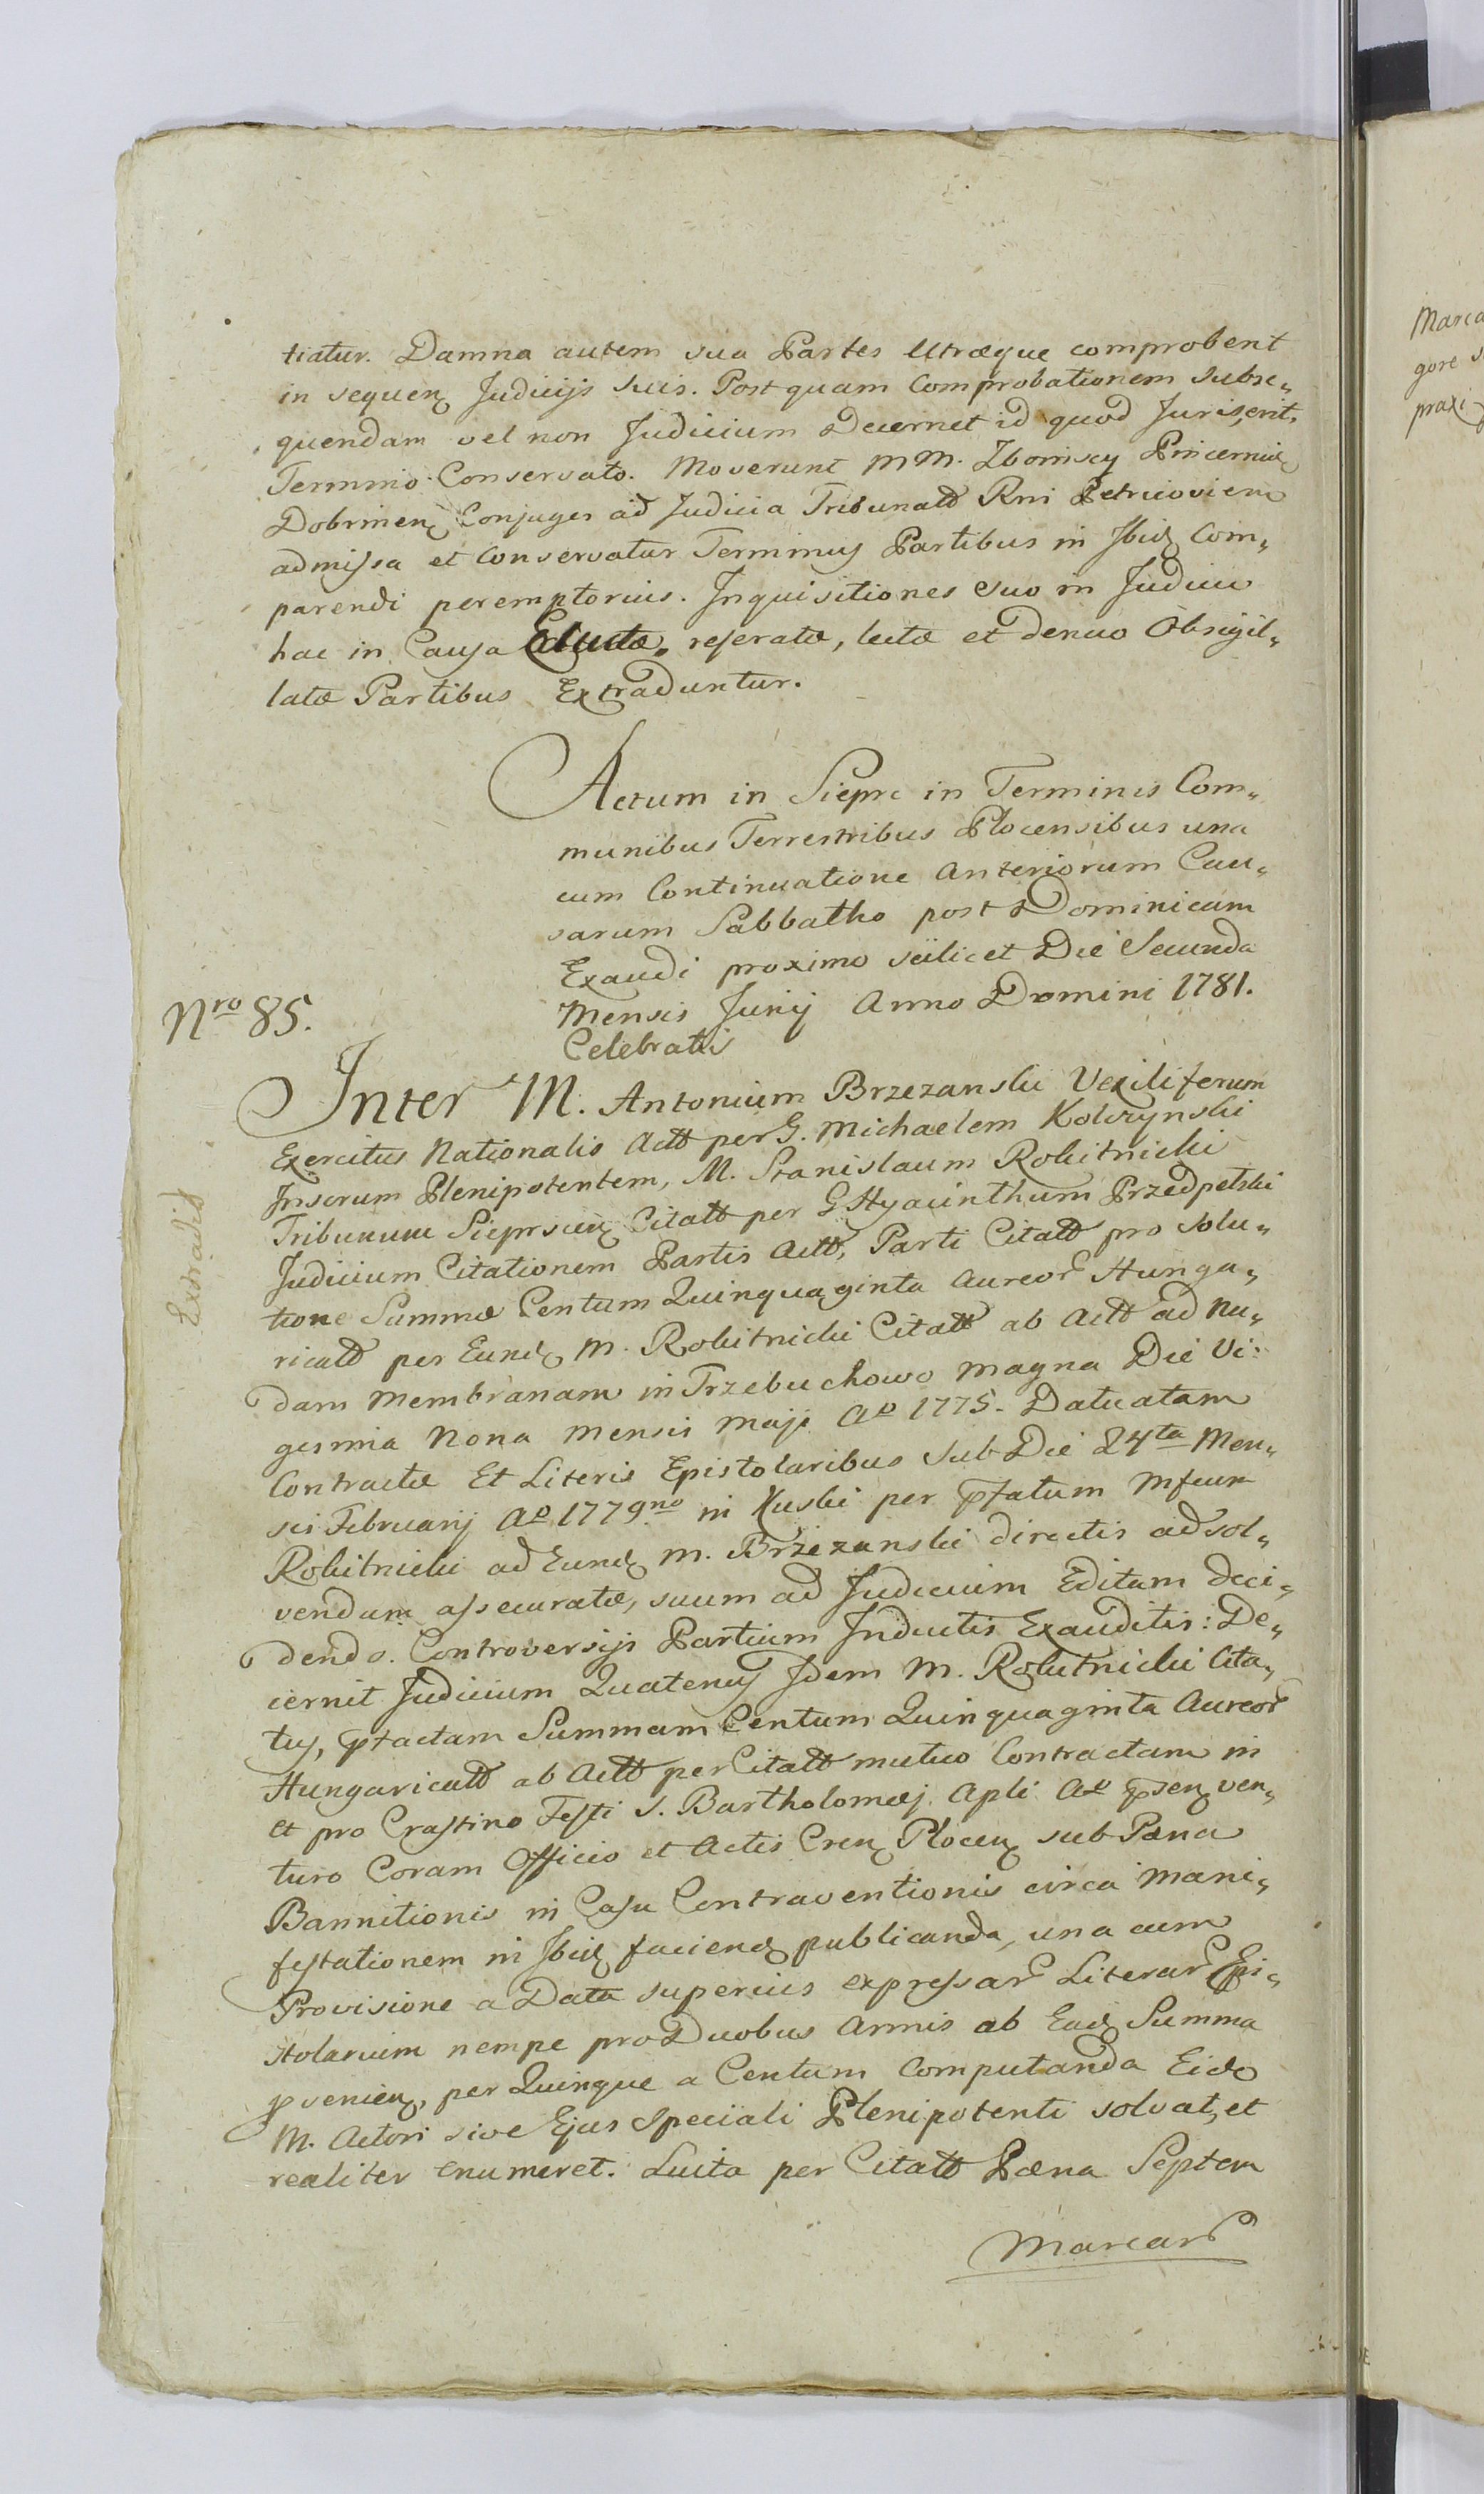 tiatur. Damna autem sua Partes Utræque comprobent
in sequenʒ Judicijs suis. Post quam Comprobationem subse„
quendam vel non Judicium Decernet id quod Juris erit,
Termino Conservato. Moverunt MM. Zboinscy Pincernid
Dobrinenʒ Conjuges ad Judicia Tribunald Rni Petricovien
admissa et Conservatur Terminus Partibus in Ibidʒ Com„
parendi peremptorius. Inquisitiones suo in Judicio
hac in Causa reseratæ, lectæ et denuo Obsigil„
latæ Partibus Extraduntur.
Actum in Sieprc in Terminis Com„
munibus Terrestribus Plocensibus una
cum Continuatione Anteriorum Cau„
sarum Sabbatho post Dominicam
Exaudi proximo scilicet Die Secunda
Mensis Junij Anno Domini 1781.
Celebratis
Nro 85.
Extradit
Inter M. Antonium Brzezanski Vexiliferum
Exercitus Nationalis Actt per G. Michaelem Kolczynski
Insorum Plenipotentem, M. Stanislaum Rokitnicki
Tribunum Sieprscenʒ Citatt per G. Hyacinthum Przedpelski
Judicium Citationem Partis Actt, Parti Citatt pro solu„
tione Summæ Centum Quinquaginta Aureor Hunga„
ricatt per Eundʒ M. Rokitnicki Citatt ab Actt ad nu„
dam Membranam in Trzebuchowo magna Die Vi„
gesima Nona Mensis Maji Ao 1775. Datuatam
Contractæ Et Literis Epistolaribus sub Die 24ta Men„
sis Februarij Ao 1779no in Kuski per pfatum Mfcum
Rokitnicki ad Eundʒ M. Brzezanski directis ad sol„
vendum assecuratæ, suum ad Judicium Editam deci„
dendo. Controversijs Partium Inductis Exauditis: De„
cernit Judicium Quatenus Idem M. Rokitnicki Cita„
tus, ptactam Summam Centum Quinquaginta Aureor
Hungaricatt ab Actt per Citatt mutuo Contractam in
et pro Crastino Festi S. Bartholomæj Apli Ao psenʒ ven„
turo Coram Officio et Actis Crenʒ Plocenʒ sub Pæna
Bannitionis in Casu Contraventionis circa Mani„
festationem in Ibidʒ faciendʒ publicanda, una cum
Provisione a Data superius expressar Literar Epi„
stolarium nempe pro Duobus Annis ab Eadʒ Summa
pvenienʒ, per Quinque a Centum Computanda Eidʒ
M. Actori sive Ejus Speciali Plenipotenti solvat, et
realiter enumeret. Luita per Citatt Pæna Septem
Marcar
Marca
gore
praxi